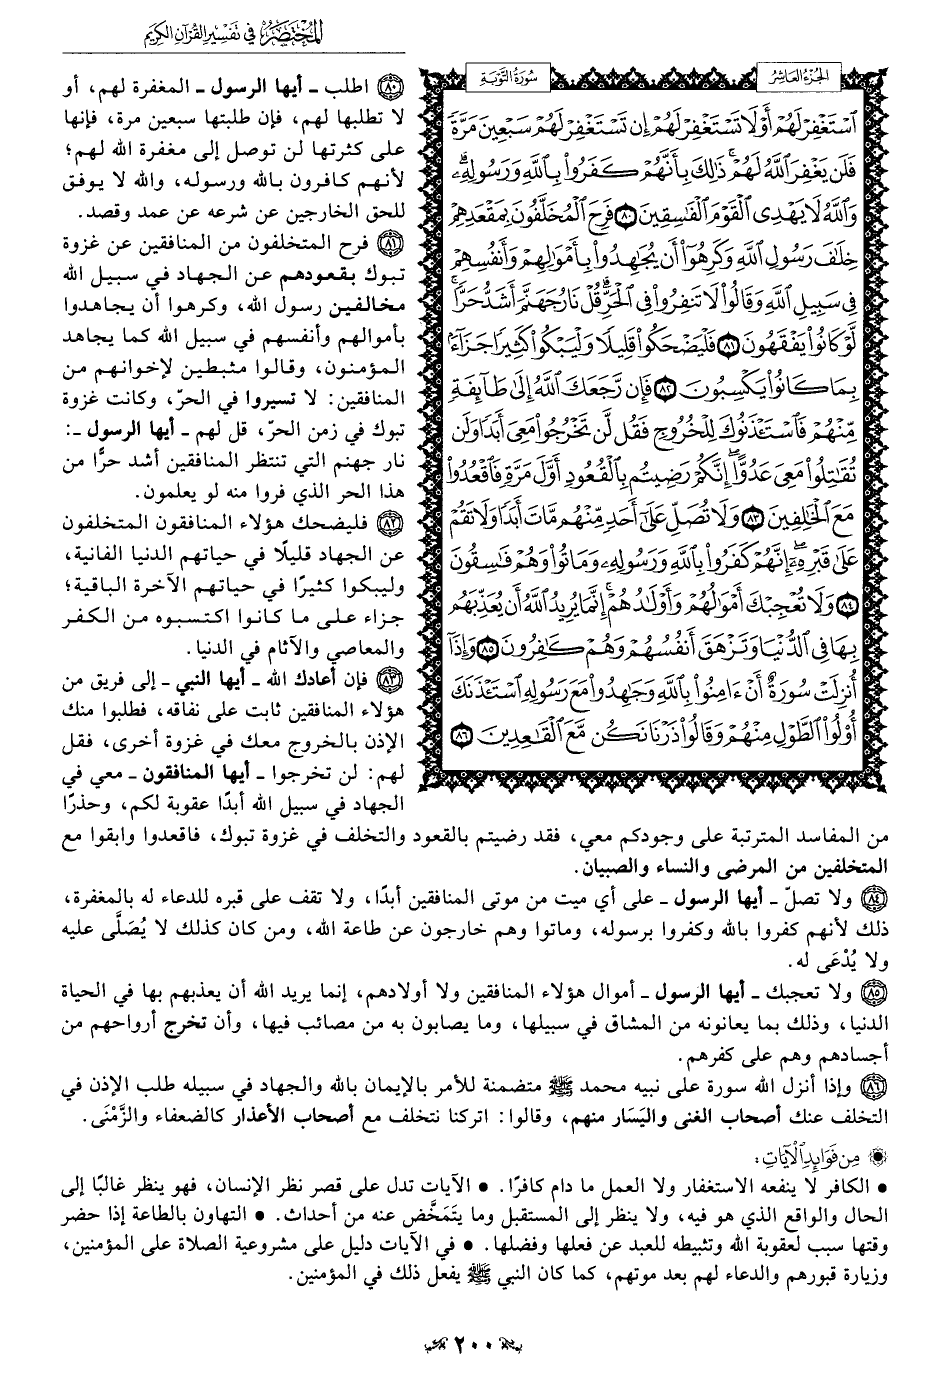 المختصر في تفسير القرآن الكريم
الجزء العاشر
سورة التوبة
ٱسۡتَغۡفِرۡ لَهُمۡ أَوۡ لَا تَسۡتَغۡفِرۡ لَهُمۡ إِن تَسۡتَغۡفِرۡ لَهُمۡ سَبۡعِينَ مَرَّةٗ
فَلَن يَغۡفِرَ ٱللَّهُ لَهُمۡۚ ذَٰلِكَ بِأَنَّهُمۡ كَفَرُواْ بِٱللَّهِ وَرَسُولِهِۦۗ
وَٱللَّهُ لَا يَهۡدِي ٱلۡقَوۡمَ ٱلۡفَٰسِقِينَ ٨٠ فَرِحَ ٱلۡمُخَلَّفُونَ بِمَقۡعَدِهِمۡ
خِلَٰفَ رَسُولِ ٱللَّهِ وَكَرِهُوٓاْ أَن يُجَٰهِدُواْ بِأَمۡوَٰلِهِمۡ وَأَنفُسِهِمۡ
فِي سَبِيلِ ٱللَّهِ وَقَالُواْ لَا تَنفِرُواْ فِي ٱلۡحَرِّۗ قُلۡ نَارُ جَهَنَّمَ أَشَدُّ حَرّٗاۚ
لَّوۡ كَانُواْ يَفۡقَهُونَ ٨١ فَلۡيَضۡحَكُواْ قَلِيلٗا وَلۡيَبۡكُواْ كَثِيرٗا جَزَآءَۢ
بِمَا كَانُواْ يَكۡسِبُونَ ٨٢ فَإِن رَّجَعَكَ ٱللَّهُ إِلَىٰ طَآئِفَةٖ
مِّنۡهُمۡ فَٱسۡتَـٔۡذَنُوكَ لِلۡخُرُوجِ فَقُل لَّن تَخۡرُجُواْ مَعِيَ أَبَدٗا وَلَن
تُقَٰتِلُواْ مَعِيَ عَدُوًّاۖ إِنَّكُمۡ رَضِيتُم بِٱلۡقُعُودِ أَوَّلَ مَرَّةٖ فَٱقۡعُدُواْ
مَعَ ٱلۡخَٰلِفِينَ ٨٣ وَلَا تُصَلِّ عَلَىٰٓ أَحَدٖ مِّنۡهُم مَّاتَ أَبَدٗا وَلَا تَقُمۡ
عَلَىٰ قَبۡرِهِۦٓۖ إِنَّهُمۡ كَفَرُواْ بِٱللَّهِ وَرَسُولِهِۦ وَمَاتُواْ وَهُمۡ فَٰسِقُونَ
٨٤ وَلَا تُعۡجِبۡكَ أَمۡوَٰلُهُمۡ وَأَوۡلَٰدُهُمۡۚ إِنَّمَا يُرِيدُ ٱللَّهُ أَن يُعَذِّبَهُم
بِهَا فِي ٱلدُّنۡيَا وَتَزۡهَقَ أَنفُسُهُمۡ وَهُمۡ كَٰفِرُونَ ٨٥ وَإِذَآ
أُنزِلَتۡ سُورَةٌ أَنۡ ءَامِنُواْ بِٱللَّهِ وَجَٰهِدُواْ مَعَ رَسُولِهِ ٱسۡتَـٔۡذَنَكَ
أُوْلُواْ ٱلطَّوۡلِ مِنۡهُمۡ وَقَالُواْ ذَرۡنَا نَكُن مَّعَ ٱلۡقَٰعِدِينَ ٨٦
٨٠ اطلب - أيها الرسول - المغفرة لهم، أو
لا تطلبها لهم، فإن طلبتها سبعين مرة، فإنها
على كثرتها لن توصل إلى مغفرة الله لهم؛
لأنهم كافرون بالله ورسوله، والله لا يوفق
للحق الخارجين عن شرعه عن عمد وقصد.
٨١ فرح المتخلفون من المنافقين عن غزوة
تبوك بقعودهم عن الجهاد في سبيل الله
مخالفين رسول الله، وكرهوا أن يجاهدوا
بأموالهم وأنفسهم في سبيل الله كما يجاهد
المؤمنون، وقالوا مثبطين لإخوانهم من
المنافقين: لا تسيروا في الحرّ، وكانت غزوة
تبوك في زمن الحرّ، قل لهم - أيها الرسول -:
نار جهنم التي تنتظر المنافقين أشد حرًّا من
هذا الحر الذي فروا منه لو يعلمون.
٨٢ فليضحك هؤلاء المنافقون المتخلفون
عن الجهاد قليلًا في حياتهم الدنيا الفانية،
وليبكوا كثيرًا في حياتهم الآخرة الباقية؛
جزاء على ما كانوا اكتسبوه من الكفر
والمعاصي والآثام في الدنيا.
٨٣ فإن أعادك الله - أيها النبي - إلى فريق من
هؤلاء المنافقين ثابت على نفاقه، فطلبوا منك
الإذن بالخروج معك في غزوة أخرى، فقل
لهم: لن تخرجوا - أيها المنافقون - معي في
الجهاد في سبيل الله أبدًا عقوبة لكم، وحذرًا
من المفاسد المترتبة على وجودكم معي، فقد رضيتم بالقعود والتخلف في غزوة تبوك، فاقعدوا وابقوا مع
المتخلفين من المرضى والنساء والصبيان.
٨٤ ولا تصلّ - أيها الرسول - على أي ميت من موتى المنافقين أبدًا، ولا تقف على قبره للدعاء له بالمغفرة،
ذلك لأنهم كفروا بالله وكفروا برسوله، وماتوا وهم خارجون عن طاعة الله، ومن كان كذلك لا يُصَلَّى عليه
ولا يُدْعَى له.
٨٥ ولا تعجبك - أيها الرسول - أموال هؤلاء المنافقين ولا أولادهم، إنما يريد الله أن يعذبهم بها في الحياة
الدنيا، وذلك بما يعانونه من المشاق في سبيلها، وما يصابون به من مصائب فيها، وأن تخرج أرواحهم من
أجسادهم وهم على كفرهم.
٨٦ وإذا أنزل الله سورة على نبيه محمد ﷺ متضمنة للأمر بالإيمان بالله والجهاد في سبيله طلب الإذن في
التخلف عنك أصحاب الغنى واليَسَار منهم، وقالوا: اتركنا نتخلف مع أصحاب الأعذار كالضعفاء والزَّمْنَى.
من فوائد الآيات:
• الكافر لا ينفعه الاستغفار ولا العمل ما دام كافرًا. • الآيات تدل على قصر نظر الإنسان، فهو ينظر غالبًا إلى
الحال والواقع الذي هو فيه، ولا ينظر إلى المستقبل وما يتَمَخَّض عنه من أحداث. • التهاون بالطاعة إذا حضر
وقتها سبب لعقوبة الله وتثبيطه للعبد عن فعلها وفضلها. • في الآيات دليل على مشروعية الصلاة على المؤمنين،
وزيارة قبورهم والدعاء لهم بعد موتهم، كما كان النبي ﷺ يفعل ذلك في المؤمنين.
٢٠٠